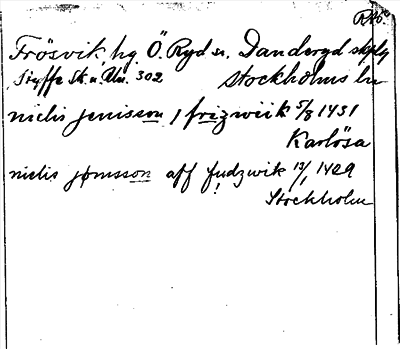 Frösvik, hg Ö. Ryd sn, Danderyd skplg
Styffe Sk. u. Un. 302 Stockholms län
nielis jenisson j frizwiik 5/8 1431
Karlösa
nielis jonsson aff fudzwik 13/1 1429
Stockholm